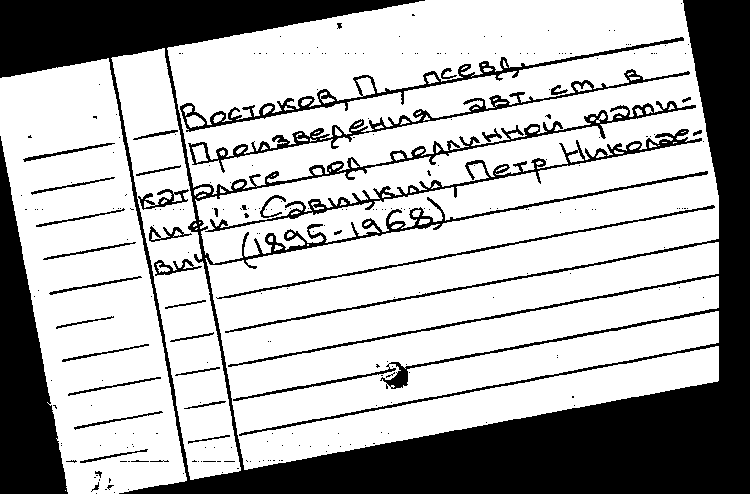 Востоков, П., псевд.
Произведения авт. см. в
каталоге под подлинной фами-
лией: Савицкий, Петр Николае-
вич (1895-1968).